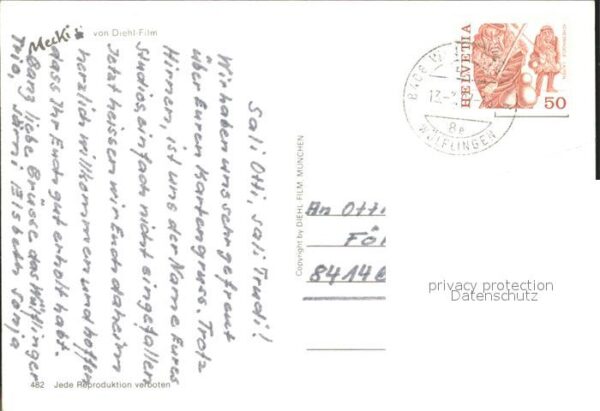 Mecki von Diehl-Film
Sali Otti, sali Trudi!
Wir haben uns sehr gefreut
über Euren Kartengruss. Trotz
Hirnen, ist uns der Name Eures
Studios, einfach nicht eingefallen
Jetzt heissen wir Euch daheim
herzlich willkommen und hoffen
dass Ihr Euch gut erholt habt.
Ganz liebe Grüsse das Wülflinger
Trio, Sämi Elsbeth Sonja
482 Jede Reproduktion verboten
Copyright by DIEHL FILM, MÜNCHEN
HELVETIA
50
8408
WÜLFLINGEN
13.-3.
8e
An Otti
8414
privacy protection
Datenschutz